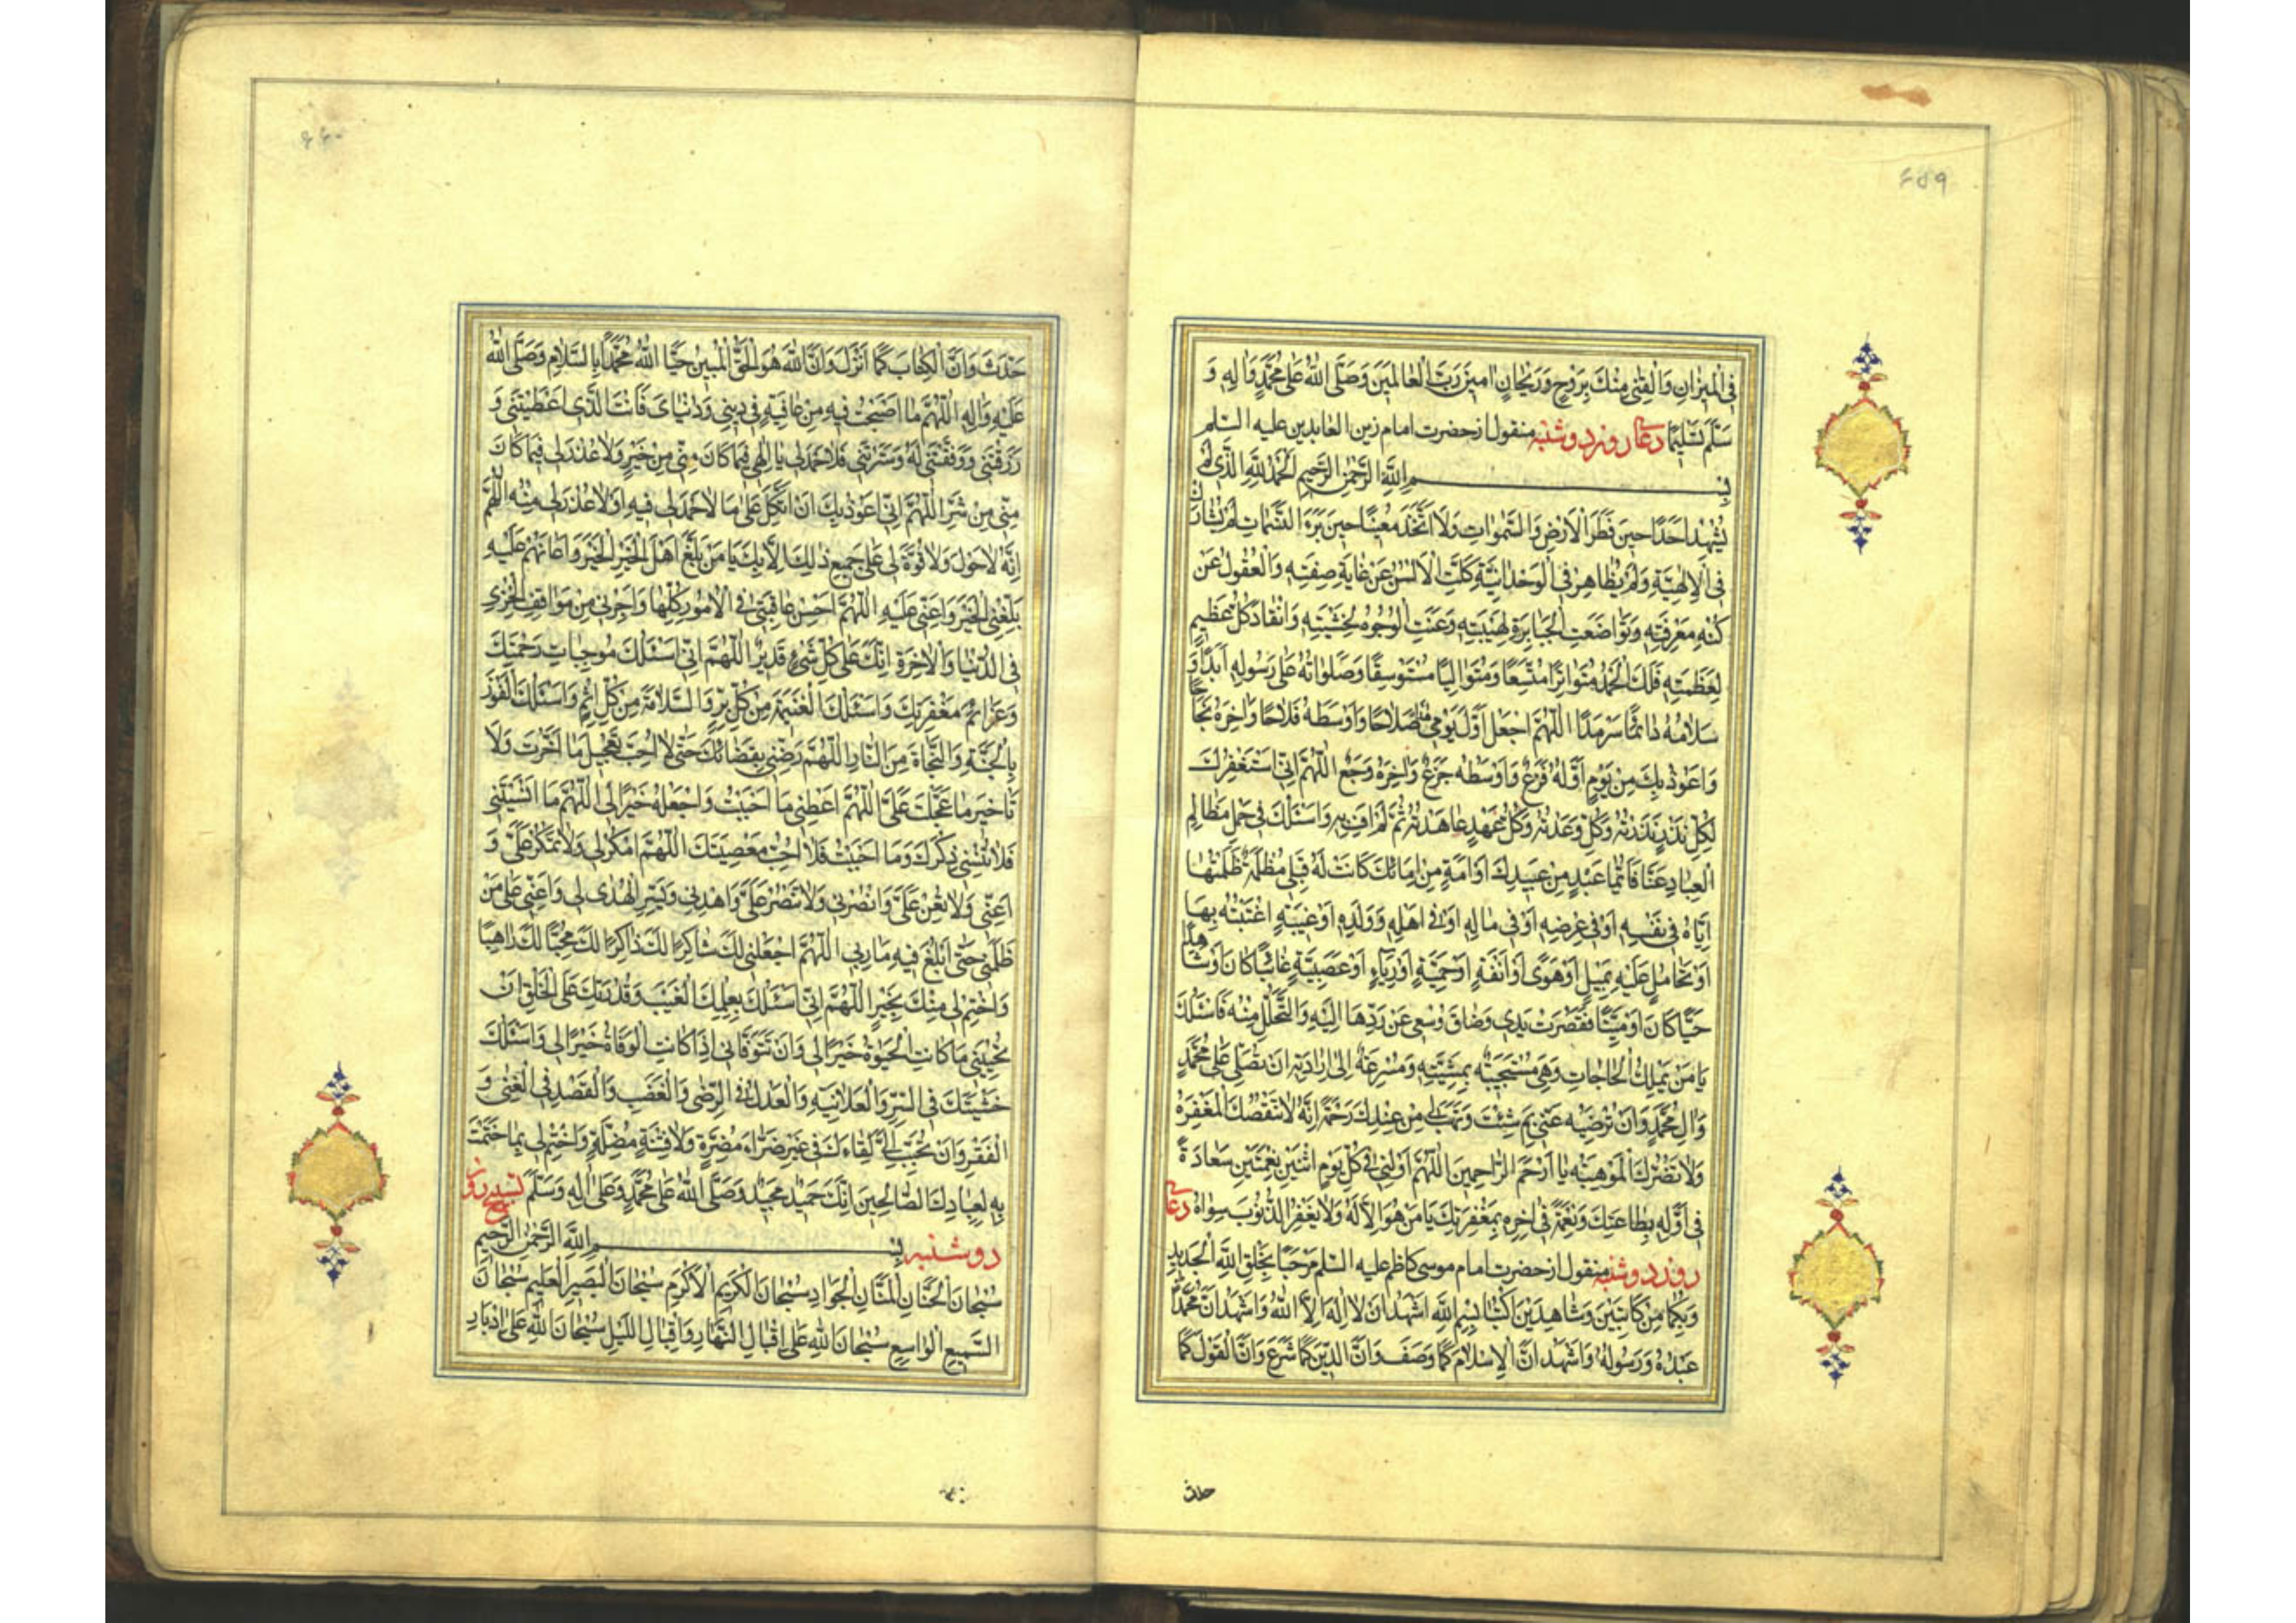 ۴۵۹
فِى الْمِيزَانِ وَالْقِنِى مِنْكَ بِرَوْحٍ وَرَيْحَانٍ امِينَ رَبَّ الْعَالَمِينَ وَصَلَّى اللهُ عَلى مُحَمَّدٍ وَالِهِ وَ
سَلَّمَ تَسْلِيمًا دعاء روز دوشنبه منقول از حضرت امام زين العابدين عليه السّلم
بِسْمِ اللهِ الرَّحْمنِ الرَّحِيمِ اَلْحَمْدُ لِلّهِ الَّذِى لَمْ
يُشْهِدْ اَحَدًا حِينَ فَطَرَ الْاَرْضَ وَالسَّموَاتِ وَلَا اتَّخَذَ مُعِينًا حِينَ بَرَءَ النَّسَمَاتِ لَمْ يُشَارَكْ
فِى الْاِلهِيَّةِ وَلَمْ يُظَاهَرْ فِى الْوَحْدَانِيَّةِ كَلَّتِ الْاَلْسُنُ عَنْ غَايَةِ صِفَتِهِ وَالْعُقُولُ عَنْ
كُنْهِ مَعْرِفَتِهِ وَتَوَاضَعَتِ الْجَبَابِرَةُ لِهَيْبَتِهِ وَعَنَتِ الْوُجُوهُ لِخَشْيَتِهِ وَانْقَادَ كُلُّ عَظِيمٍ
لِعَظَمَتِهِ فَلَكَ الْحَمْدُ مُتَوَاتِرًا مُتَّسِقًا وَمُتَوَالِيًا مُسْتَوْسِقًا وَصَلَوَاتُهُ عَلى رَسُولِهِ اَبَدًا وَ
سَلَامُهُ دَائِمًا سَرْمَدًا اَللّهُمَّ اجْعَلْ اَوَّلَ يَوْمِى هذَا صَلَاحًا وَاَوْسَطَهُ فَلَاحًا وَاخِرَهُ نَجَاحًا
وَاَعُوذُ بِكَ مِنْ يَوْمٍ اَوَّلُهُ فَزَعٌ وَاَوْسَطُهُ جَزَعٌ وَاخِرُهُ وَجَعٌ اَللّهُمَّ اِنِّى اَسْتَغْفِرُكَ
لِكُلِّ نَذْرٍ نَذَرْتُهُ وَكُلِّ وَعْدٍ وَعَدْتُهُ وَكُلِّ عَهْدٍ عَاهَدْتُهُ ثُمَّ لَمْ اَفِ بِهِ وَاَسْئَلُكَ فِى حَمْلِ مَظَالِمِ
الْعِبَادِ عَنَّا فَاَيُّمَا عَبْدٍ مِنْ عَبِيدِكَ اَوْ اَمَةٍ مِنْ اِمَائِكَ كَانَتْ لَهُ قِبَلِى مَظْلَمَةٌ ظَلَمْتُهَا
اِيَّاهُ فِى نَفْسِهِ اَوْ فِى عِرْضِهِ اَوْ فِى مَالِهِ اَوْ فِى اَهْلِهِ وَوَلَدِهِ اَوْ غِيبَةٍ اغْتَبْتُهُ بِهَا
اَوْ تَحَامُلٍ عَلَيْهِ بِمَيْلٍ اَوْ هَوًى اَوْ اَنَفَةٍ اَوْ حَمِيَّةٍ اَوْ رِيَاءٍ اَوْ عَصَبِيَّةٍ غَائِبًا كَانَ اَوْ شَاهِدًا
حَيًّا كَانَ اَوْ مَيِّتًا فَقَصُرَتْ يَدِى وَضَاقَ وُسْعِى عَنْ رَدِّهَا اِلَيْهِ وَالتَّحَلُّلِ مِنْهُ فَاَسْئَلُكَ
يَا مَنْ يَمْلِكُ الْحَاجَاتِ وَهِىَ مُسْتَجِيبَةٌ بِمَشِيَّتِهِ وَمُسْرِعَةٌ اِلى اِرَادَتِهِ اَنْ تُصَلِّىَ عَلى مُحَمَّدٍ
وَالِ مُحَمَّدٍ وَاَنْ تُرْضِيَهُ عَنِّى بِمَ شِئْتَ وَتَهَبَ لِى مِنْ عِنْدِكَ رَحْمَةً اِنَّهُ لَا تَنْقُصُكَ الْمَغْفِرَةُ
وَلَا تَضُرُّكَ الْمَوْهِبَةُ يَا اَرْحَمَ الرَّاحِمِينَ اَللّهُمَّ اَوْلِنِى فِى كُلِّ يَوْمِ اثْنَيْنِ نِعْمَتَيْنِ سَعَادَةً
فِى اَوَّلِهِ بِطَاعَتِكَ وَنِعْمَةً فِى اخِرِهِ بِمَغْفِرَتِكَ يَا مَنْ هُوَ الْاِلهُ وَلَا يَغْفِرُ الذُّنُوبَ سِوَاهُ دعاء
روز دوشنبه منقول از حضرت امام موسى كاظم عليه السّلم مَرْحَبًا بِخَلْقِ اللهِ الْجَدِيدِ
وَبِكُمَا مِنْ كَاتِبَيْنِ وَشَاهِدَيْنِ اُكْتُبَا بِسْمِ اللهِ اَشْهَدُ اَنْ لَا اِلهَ اِلَّا اللهُ وَاَشْهَدُ اَنَّ مُحَمَّدًا
عَبْدُهُ وَرَسُولُهُ وَاَشْهَدُ اَنَّ الْاِسْلَامَ كَمَا وَصَفَ وَاَنَّ الدِّينَ كَمَا شَرَعَ وَاَنَّ الْقَوْلَ كَمَا
حدث
۴۶۰
حَدَّثَ وَاَنَّ الْكِتَابَ كَمَا اَنْزَلَ وَاَنَّ اللهَ هُوَ الْحَقُّ الْمُبِينُ حَيَّا اللهُ مُحَمَّدًا بِالسَّلَامِ وَصَلَّى اللهُ
عَلَيْهِ وَالِهِ اَللّهُمَّ مَا اَصْبَحْتُ فِيهِ مِنْ عَافِيَةٍ فِى دِينِى وَدُنْيَاىَ فَاَنْتَ الَّذِى اَعْطَيْتَنِى وَ
رَزَقْتَنِى وَوَفَّقْتَنِى لَهُ وَسَتَرْتَنِى فَلَا حَمْدَ لِى يَا اِلهِى فِيمَا كَانَ مِنِّى مِنْ خَيْرٍ وَلَا عُذْرَ لِى فِيمَا كَانَ
مِنِّى مِنْ شَرٍّ اَللّهُمَّ اِنِّى اَعُوذُ بِكَ اَنْ اَتَّكِلَ عَلى مَا لَا حَمْدَ لِى فِيهِ اَوْ لَا عُذْرَ لِى مِنْهُ اَللّهُمَّ
اِنَّهُ لَا حَوْلَ وَلَا قُوَّةَ لِى عَلى جَمِيعِ ذلِكَ اِلَّا بِكَ يَا مَنْ بَلَّغَ اَهْلَ الْخَيْرِ الْخَيْرَ وَاَعَانَهُمْ عَلَيْهِ
بَلِّغْنِى الْخَيْرَ وَاَعِنِّى عَلَيْهِ اَللّهُمَّ اَحْسِنْ عَاقِبَتِى فِى الْاُمُورِ كُلِّهَا وَاَجِرْنِى مِنْ مَوَاقِفِ الْخِزْىِ
فِى الدُّنْيَا وَالْاخِرَةِ اِنَّكَ عَلى كُلِّ شَىْءٍ قَدِيرٌ اَللّهُمَّ اِنِّى اَسْئَلُكَ مُوجِبَاتِ رَحْمَتِكَ
وَعَزَائِمَ مَغْفِرَتِكَ وَاَسْئَلُكَ الْغَنِيمَةَ مِنْ كُلِّ بِرٍّ وَالسَّلَامَةَ مِنْ كُلِّ اِثْمٍ وَاَسْئَلُكَ الْفَوْزَ
بِالْجَنَّةِ وَالنَّجَاةَ مِنَ النَّارِ اَللّهُمَّ رَضِّنِى بِقَضَائِكَ حَتّى لَا اُحِبَّ تَعْجِيلَ مَا اَخَّرْتَ وَلَا
تَاْخِيرَ مَا عَجَّلْتَ عَلَىَّ اَللّهُمَّ اَعْطِنِى مَا اَحْبَبْتُ وَاجْعَلْهُ خَيْرًا لِى اَللّهُمَّ مَا اَنْسَيْتَنِى
فَلَا تُنْسِنِى ذِكْرَكَ وَمَا اَحْبَبْتُ فَلَا اُحِبُّ مَعْصِيَتَكَ اَللّهُمَّ امْكُرْ لِى وَلَا تَمْكُرْ عَلَىَّ وَ
اَعِنِّى وَلَا تُعِنْ عَلَىَّ وَانْصُرْنِى وَلَا تَنْصُرْ عَلَىَّ وَاهْدِنِى وَيَسِّرِ الْهُدى لِى وَاَعِنِّى عَلى مَنْ
ظَلَمَنِى حَتّى اَبْلُغَ فِيهِ مَارِبِى اَللّهُمَّ اجْعَلْنِى لَكَ شَاكِرًا لَكَ ذَاكِرًا لَكَ مُحِبًّا لَكَ رَاهِبًا
وَاخْتِمْ لِى مِنْكَ بِخَيْرٍ اَللّهُمَّ اِنِّى اَسْئَلُكَ بِعِلْمِكَ الْغَيْبَ وَقُدْرَتِكَ عَلَى الْخَلْقِ اَنْ
تُحْيِيَنِى مَا كَانَتِ الْحَيوةُ خَيْرًا لِى وَاَنْ تَتَوَفَّانِى اِذَا كَانَتِ الْوَفَاةُ خَيْرًا لِى وَاَسْئَلُكَ
خَشْيَتَكَ فِى السِّرِّ وَالْعَلَانِيَةِ وَالْعَدْلَ فِى الرِّضى وَالْغَضَبِ وَالْقَصْدَ فِى الْغِنى وَ
الْفَقْرِ وَاَنْ تُحَبِّبَ اِلَىَّ لِقَاءَكَ فِى غَيْرِ ضَرَّاءَ مُضِرَّةٍ وَلَا فِتْنَةٍ مُضِلَّةٍ وَاخْتِمْ لِى بِمَا خَتَمْتَ
بِهِ لِعِبَادِكَ الصَّالِحِينَ اِنَّكَ حَمِيدٌ مَجِيدٌ وَصَلَّى اللهُ عَلى مُحَمَّدٍ وَعَلى الِهِ وَسَلَّمَ تسبيح روز
دوشنبه بِسْمِ اللهِ الرَّحْمنِ الرَّحِيمِ
سُبْحَانَ الْحَنَّانِ الْمَنَّانِ الْجَوَادِ سُبْحَانَ الْكَرِيمِ الْاَكْرَمِ سُبْحَانَ الْبَصِيرِ الْعَلِيمِ سُبْحَانَ
السَّمِيعِ الْوَاسِعِ سُبْحَانَ اللهِ عَلى اِقْبَالِ النَّهَارِ وَاِقْبَالِ اللَّيْلِ سُبْحَانَ اللهِ عَلى اِدْبَارِ